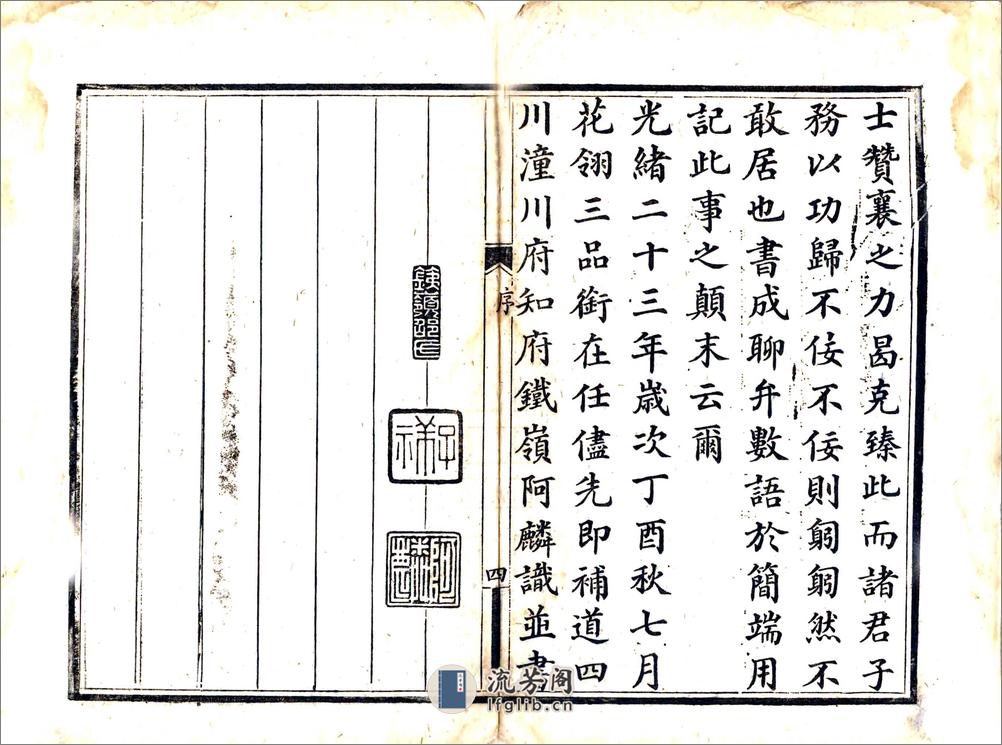 士贊襄之力曷克臻此而諸君子
務以功歸不佞不佞則躬躬然不
敢居也書成聊弁數語於簡端用
記此事之顛末云爾
光緒二十三年歲次丁酉秋七月
花翎三品銜在任儘先即補道四
川潼川府知府鐵嶺阿麟識並書
序
四
子祥
流芳阁
lfglib.cn